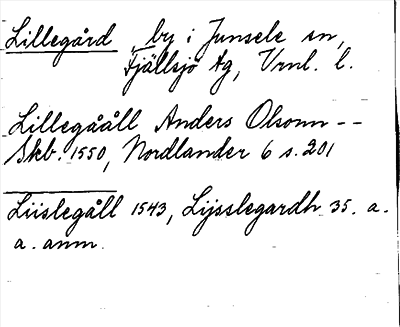 Lillegård, by i Junsele sn,
Fjällsjö tg, Vrnl. l.
Lillegååll Anders Olsonn --
Skb. 1550, Nordlander 6 s. 201
Liislegåll 1543, Lijsslegardh 35. a.
a. anm.